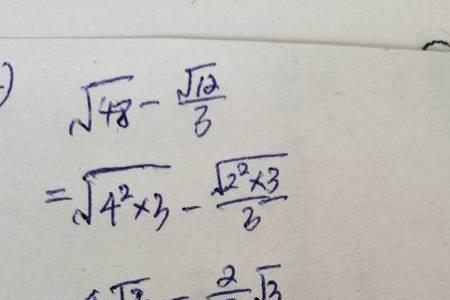 √48 - √12/3
= √4²×3 - √2²×3/3
4√3 - 2/3 √3